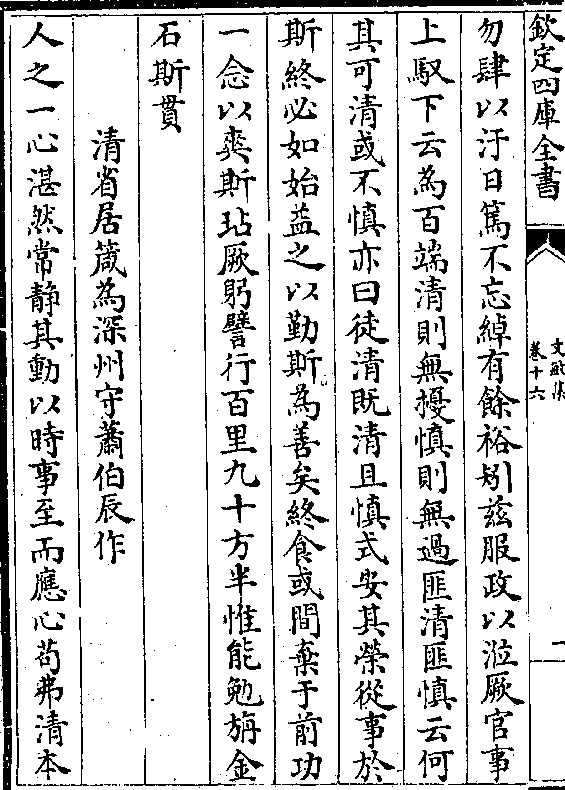 欽定四庫全書
文敏集
卷十六
一
勿肆以汙日篤不忘綽有餘裕矧兹服政以涖厥官事
上馭下云為百端清則無擾慎則無過匪清匪慎云何
其可清或不慎亦曰徒清既清且慎式安其榮從事於
斯終必如始益之以勤斯為善矣終食或間棄于前功
一念以爽斯玷厥躬譬行百里九十方半惟能勉旃金
石斯貫
清省居箴為深州守蕭伯辰作
人之一心湛然常静其動以時事至而應心苟弗清本